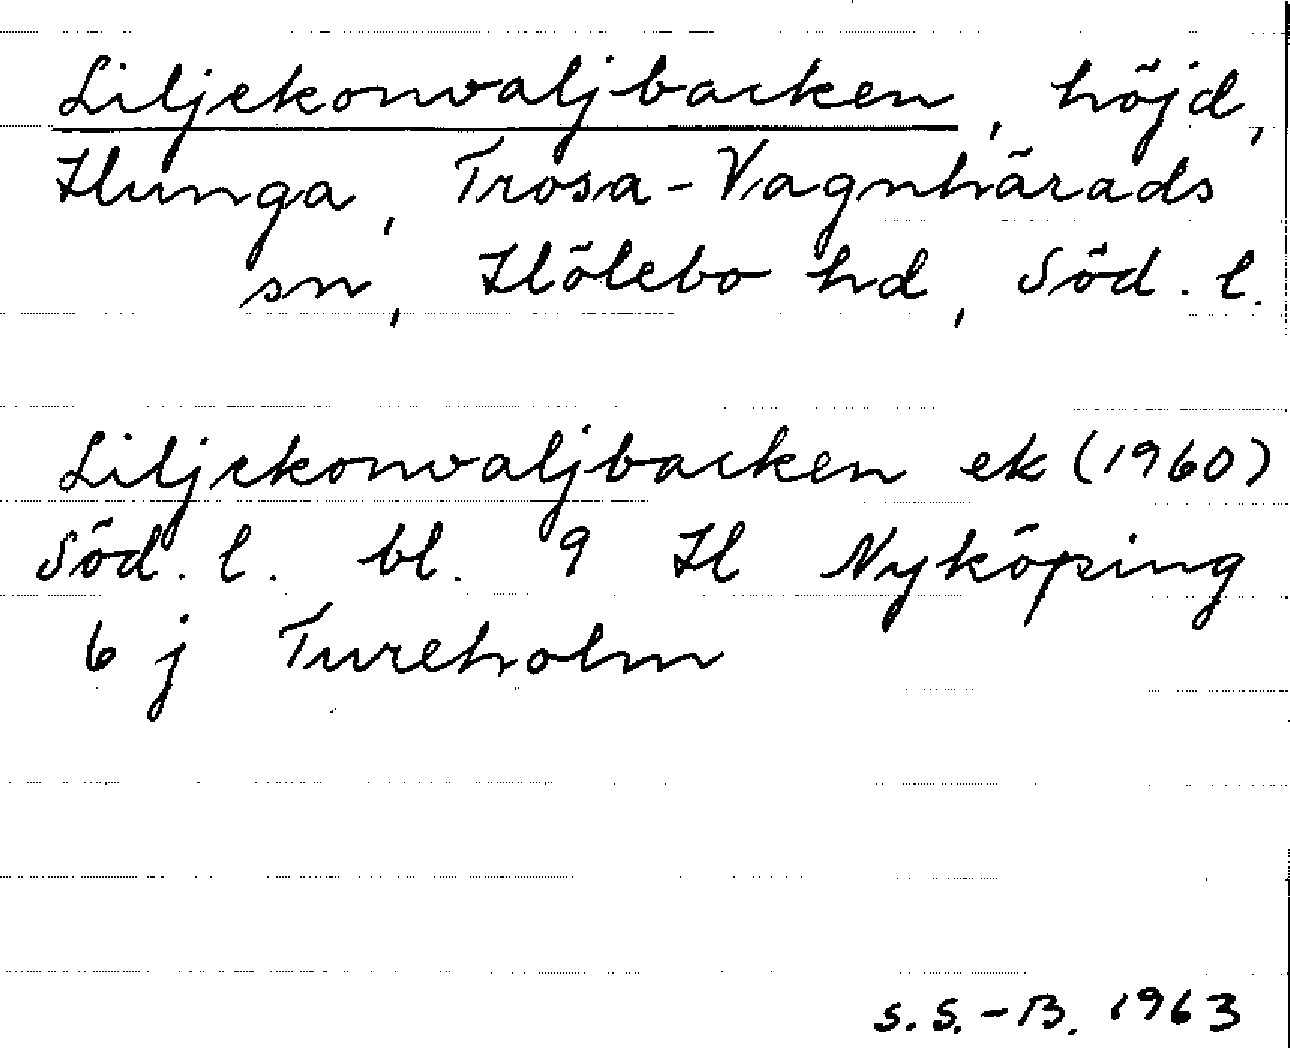 Liljekonvaljbacken, höjd,
Hunga, Trosa-Vagnhärads
sn, Hölebo hd, Söd. l.
Liljekonvaljbacken ek (1960)
Söd. l. bl. 9 H Nyköping
6 j Tureholm
S.S.-B. 1963